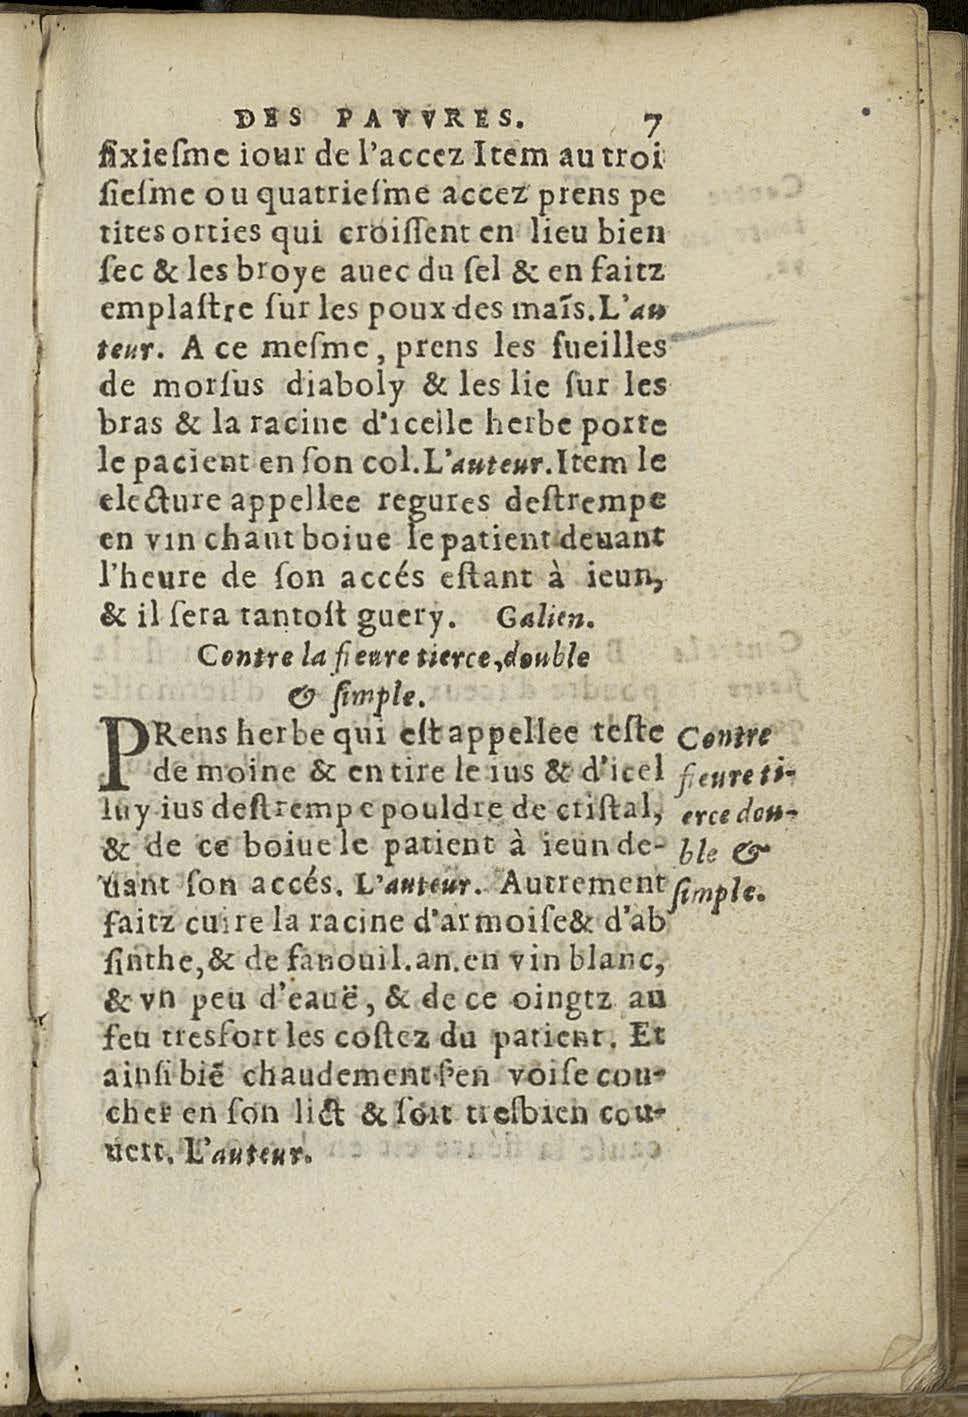 DES PAVVRES. 7
ſixieſme iour de l'accez Item au troi
ſieſme ou quatrieſme accez prens pe
tites orties qui croiſſent en lieu bien
ſec & les broye auec du ſel & en faitz
emplaſtre ſur les poux des maĩs. L'au
teur. A ce meſme, prens les fueilles
de morſus diaboly & les lie ſur les
bras & la racine d'icelle herbe porte
le pacient en ſon col. L'auteur. Item le
electure appellee regures deſtrempe
en vin chaut boiue le patient deuant
l'heure de ſon accés eſtant à ieun,
& il ſera tantoſt guery. Galien.
Contre la fieure tierce, double
& ſimple.
PRens herbe qui eſt appellee teſte
de moine & en tire le ius & d'icel
luy ius deſtrempe pouldre de criſtal,
& de ce boiue le patient à ieun de-
uant ſon accés. L'auteur. Autrement
faitz cuire la racine d'armoiſe & d'ab
ſinthe, & de fanouil. an. en vin blanc,
& vn peu d'eauë, & de ce oingtz au
feu tresfort les coſtez du patient. Et
ainſi biẽ chaudement s'en voiſe cou-
cher en ſon lict & ſoit treſbien cou-
uert. L'auteur.
Contre
fieure ti-
erce dou-
ble &
ſimple.